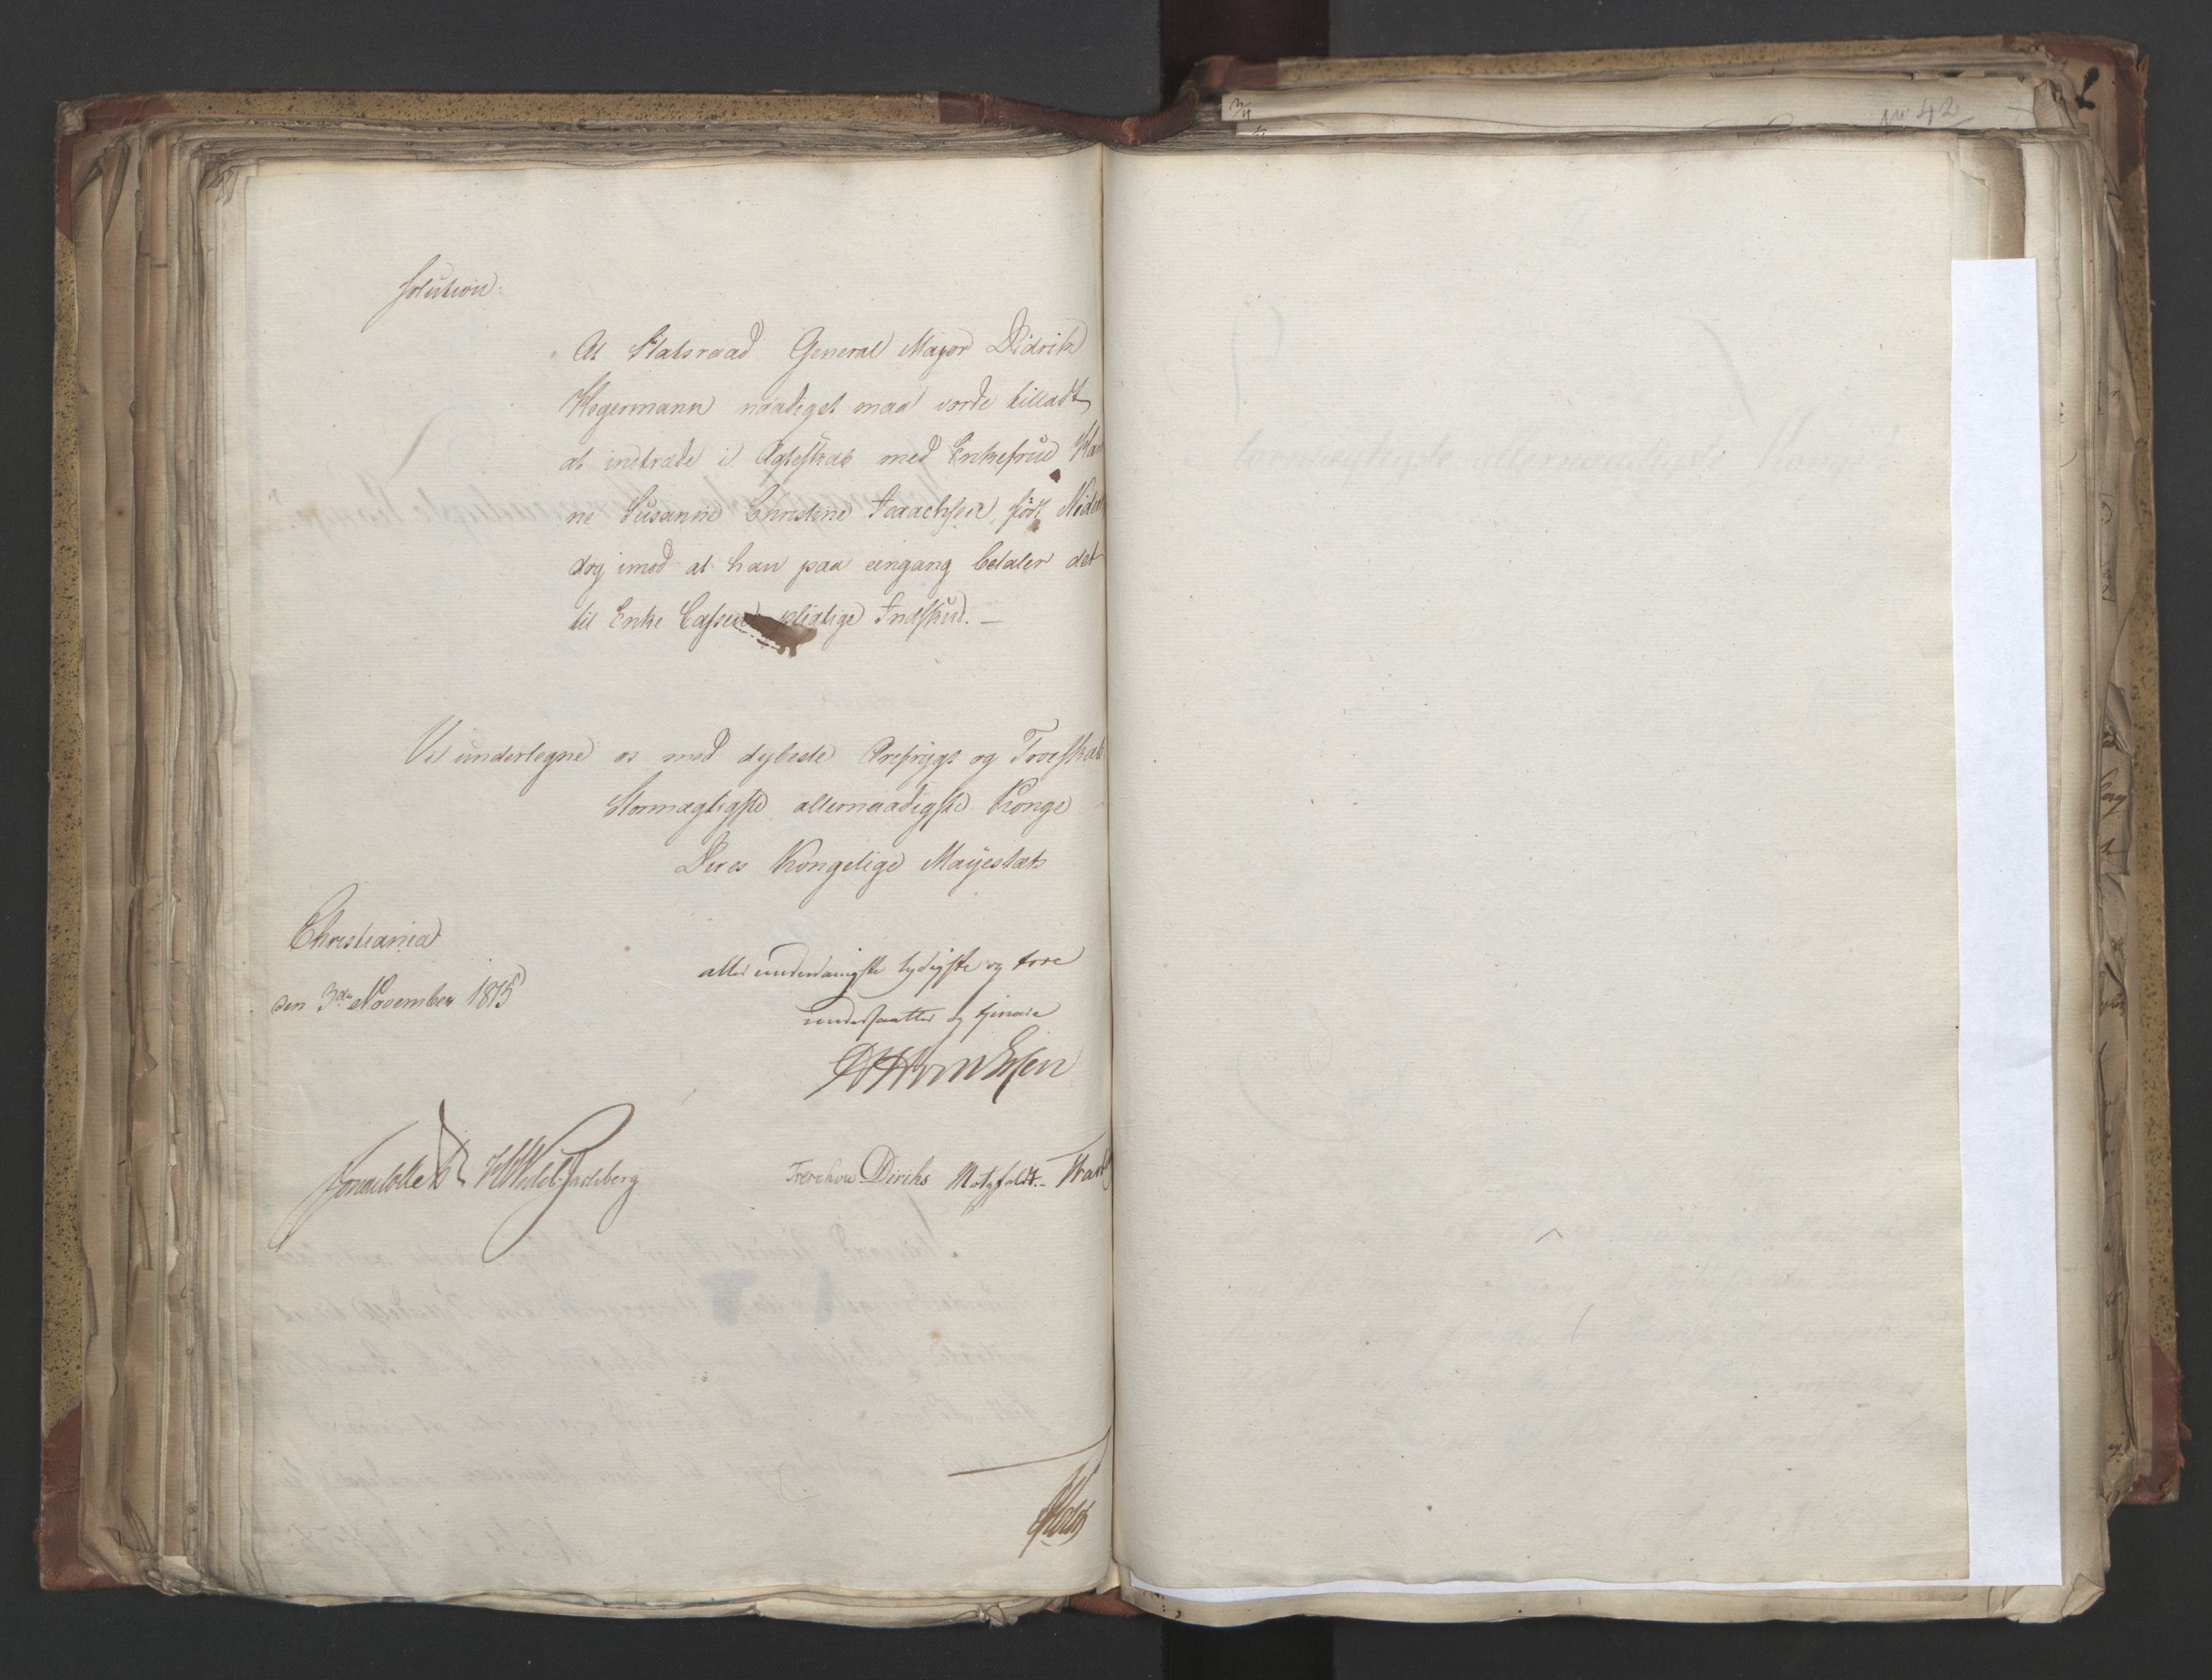 solution:
At Statsraad General Major Didrik
Hegermann naadigst maa vorde tilladt
at indtræde i Ægteskab med Enkefrue Han
ne Susanne Christine Isaachsen, född Nideros
dog imod at han paa eengang betaler det
til Enke Cassen pligtige Indskud. —
Vi undertegne os med dybeste Ærefrygt og Troeskab
Stormægtigste allernaadigste Konge
Deres Kongelige Mayestæts
Christiania
den 3de November 1815
allerunderdanigste lydigste og troe
undersaatter og tjenere
HHvon Essen
Jonas Collett HWedel Jarlsberg
Treschow Diriks Motzfeldt.
Holst
No 42